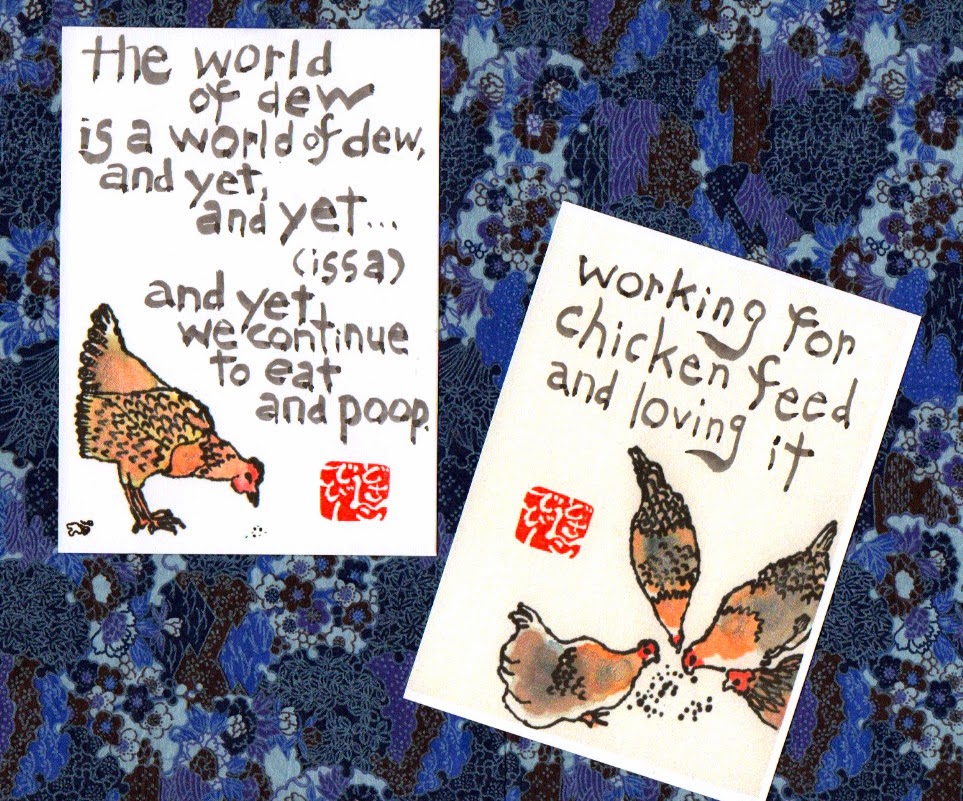 the world
of dew
is a world of dew,
and yet,
and yet...
(issa)
and yet,
we continue
to eat
and poop.
working for
chicken feed
and loving it